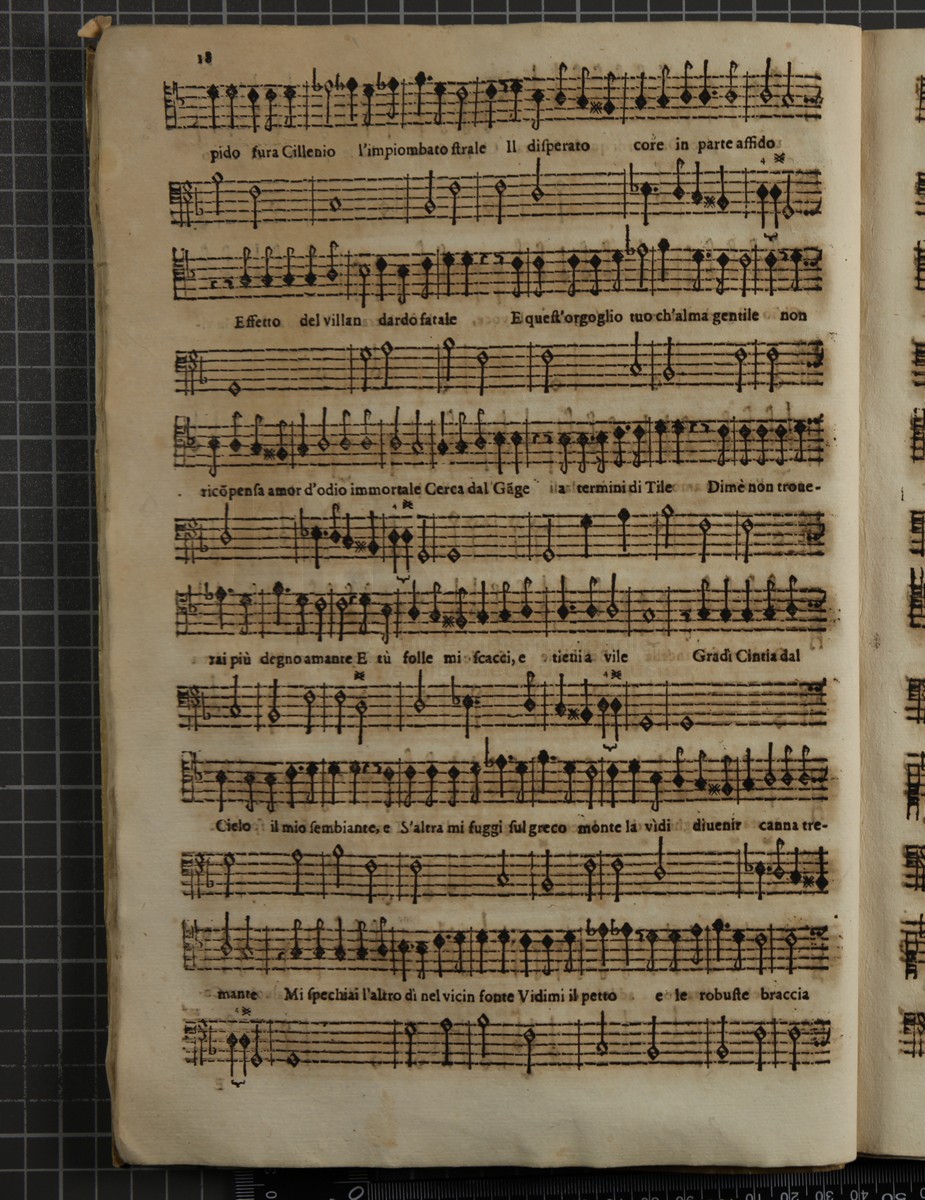 18
pido fura Cillenio l'impiombato ſtrale Il diſperato core in parte affido
4
Effetto del villan dardo fatale E queſt'orgoglio tuo ch'alma gentile non
ricõpenſa amor d'odio immortale Cerca dal Gãge a termini di Tile Dimè non troue-
4
rai più degno amante E tù folle mi ſcacci, e tieni a vile Gradì Cintia dal
4
Cielo il mio ſembiante, e S'altra mi fuggì ſul greco monte la vidi diuenir canna tre-
mante Mi ſpechiai l'altro dì nel vicin fonte Vidimi il petto e le robuſte braccia
4